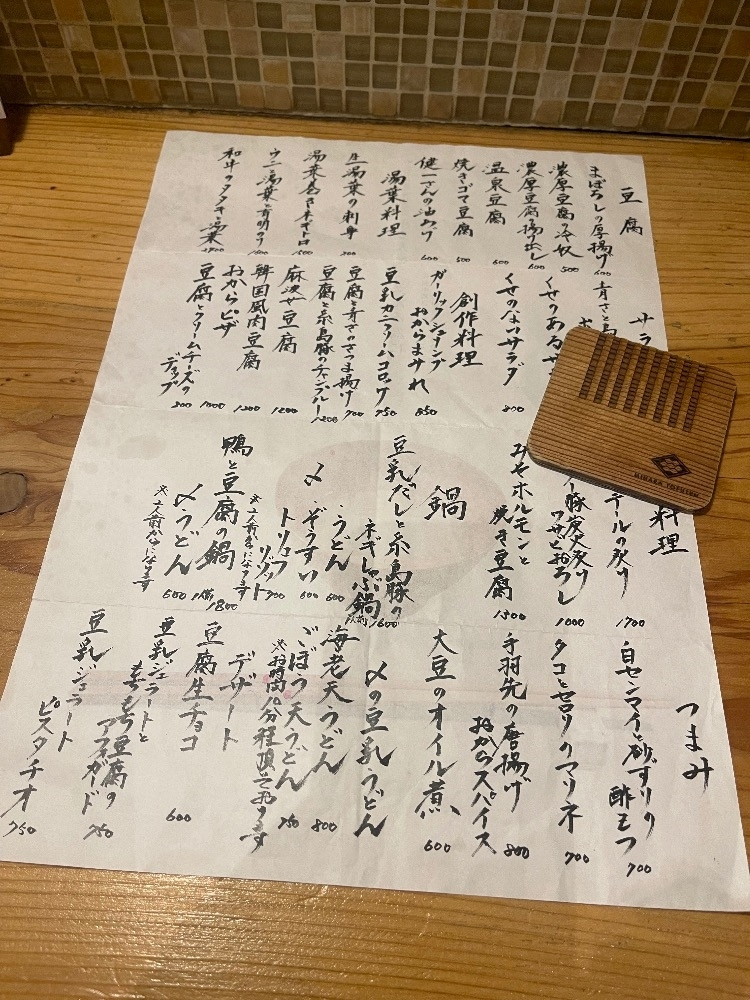 豆腐
まぼろしの厚揚げ 600
濃厚豆腐の冷奴 500
濃厚豆腐の揚げ出し 600
温泉豆腐 600
焼きゴマ豆腐 500
健一さんの油あげ 600
湯葉料理
生湯葉の刺身 900
湯葉巻き 1500
ウニと湯葉と有明のり 1600
和牛のタタキと湯葉 1800
サラ
青さと
くせのあるサ
くせのないサラダ 800
創作料理
ガーリックシュリンプ
おからまみれ 850
豆乳カニクリームコロッケ 750
豆腐と青さのさつま揚げ 700
豆腐と糸島豚のチャンプルー 1200
麻婆豆腐 1200
韓国風肉豆腐 1200
おからピザ 1000
豆腐とクリームチーズの
ディップ 800
料理
テールの炙り 1700
豚炭火炙り
ワサビおろし 1000
みそホルモンと
焼き豆腐 1500
鍋
豆乳だしと糸島豚の
ネギしゃぶ鍋 1人前 1600
〆・うどん 600
・ぞうすい 600
トリュフ
リゾット 900
※2人前からになります
鴨と豆腐の鍋 1人前 1800
〆うどん 600
※2人前からになります
つまみ
白センマイと砂ずりの
酢モツ 700
タコとセロリのマリネ 700
手羽先の唐揚げ
おからスパイス 800
大豆のオイル煮 600
〆の豆乳うどん
海老天うどん 800
ごぼう天うどん 750
※お時間10分程頂いております
デザート
豆腐生チョコ 600
豆乳ジェラートと
もちもち豆腐の
アフォガード 750
豆乳ジェラート
ピスタチオ 750